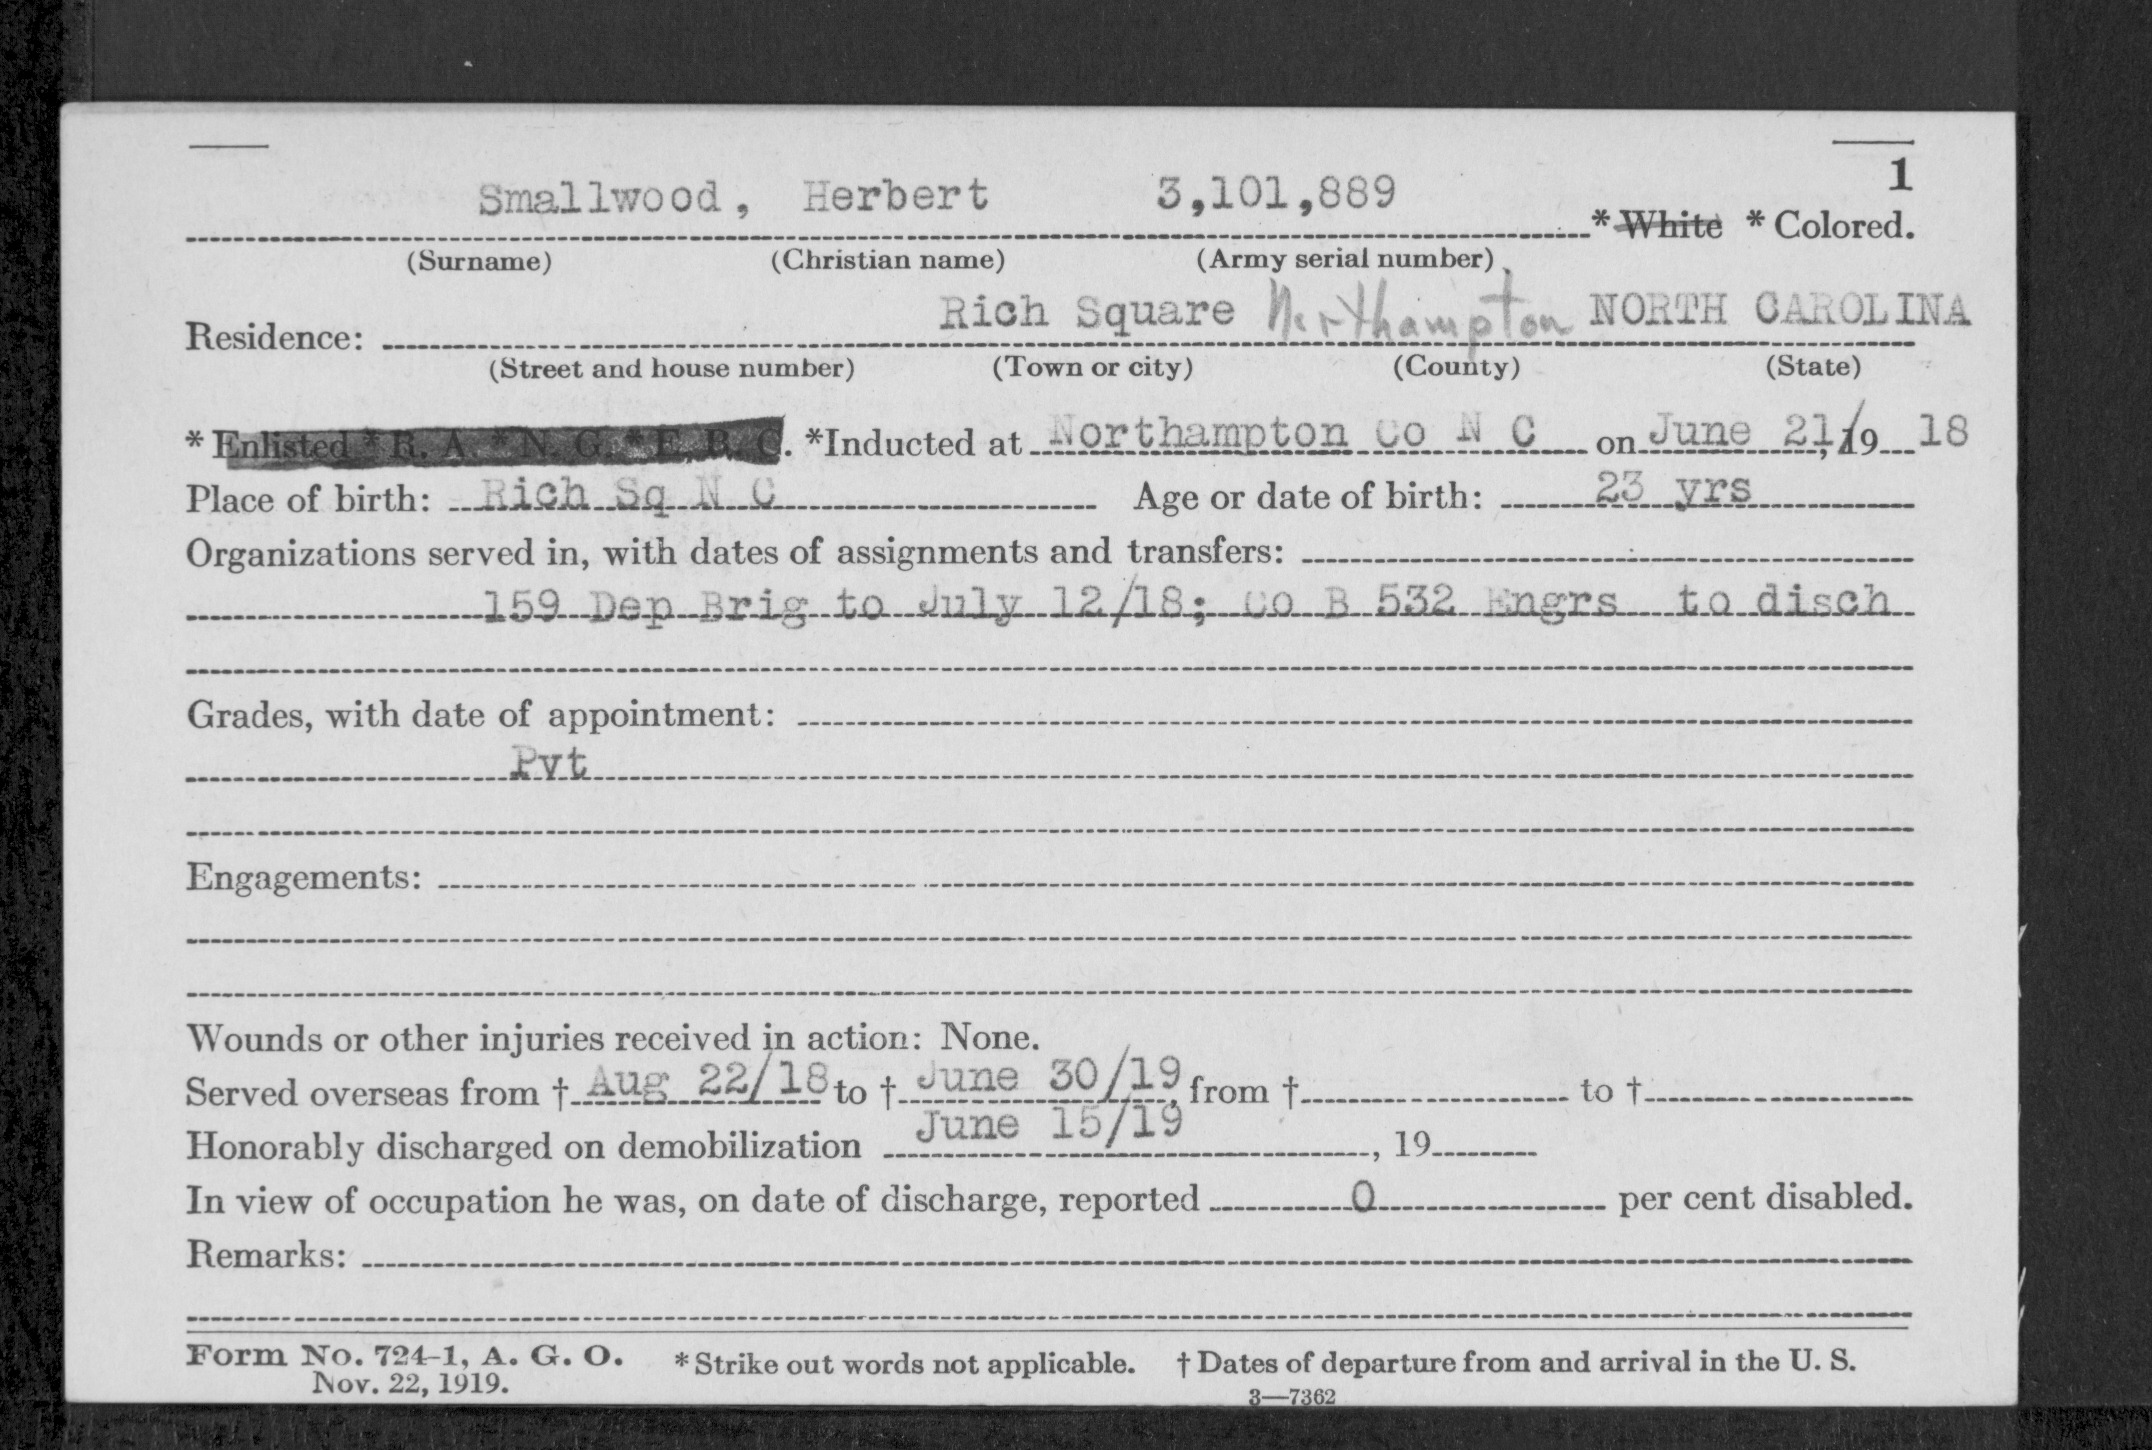 1
Smallwood, Herbert 3,101,889 * White * Colored.
(Surname) (Christian name) (Army serial number)
Residence: Rich Square Northampton NORTH CAROLINA
(Street and house number) (Town or city) (County) (State)
* Enlisted * R. A. * N. G. * E. R. C. *Inducted at Northampton Co N C on June 21/, 19 18
Place of birth: Rich Sq N C Age or date of birth: 23 yrs
Organizations served in, with dates of assignments and transfers:
159 Dep Brig to July 12/18; Co B 532 Engrs to disch
Grades, with date of appointment:
Pvt
Engagements:
Wounds or other injuries received in action: None.
Served overseas from † Aug 22/18 to † June 30/19, from † to †
Honorably discharged on demobilization June 15/19, 19
In view of occupation he was, on date of discharge, reported 0 per cent disabled.
Remarks:
Form No. 724-1, A. G. O. * Strike out words not applicable. † Dates of departure from and arrival in the U. S.
Nov. 22, 1919. 3—7362